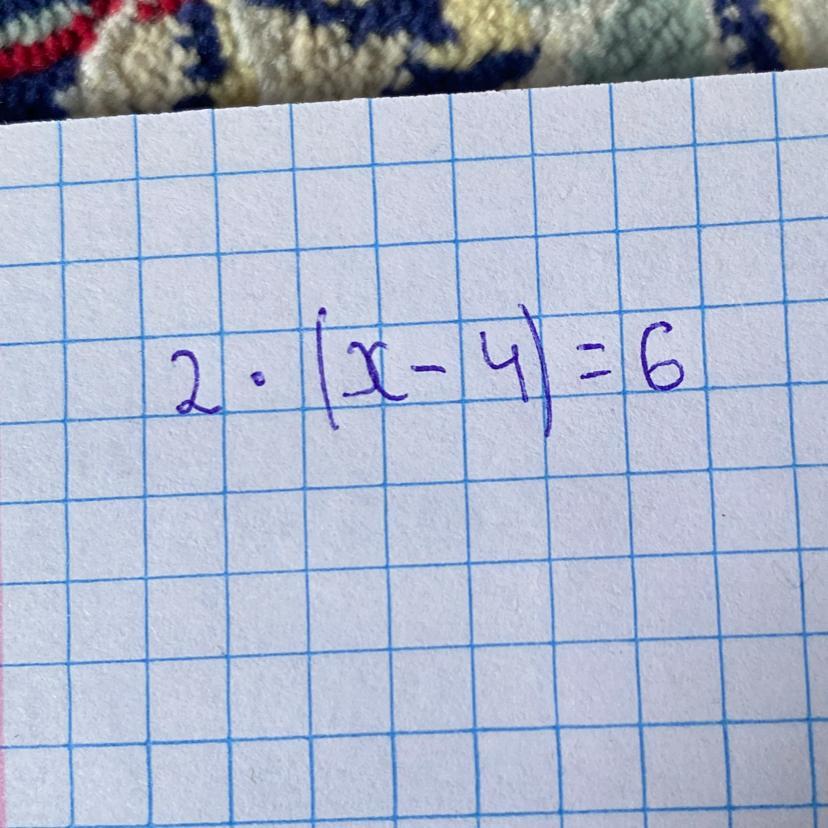 2 · (x - 4) = 6